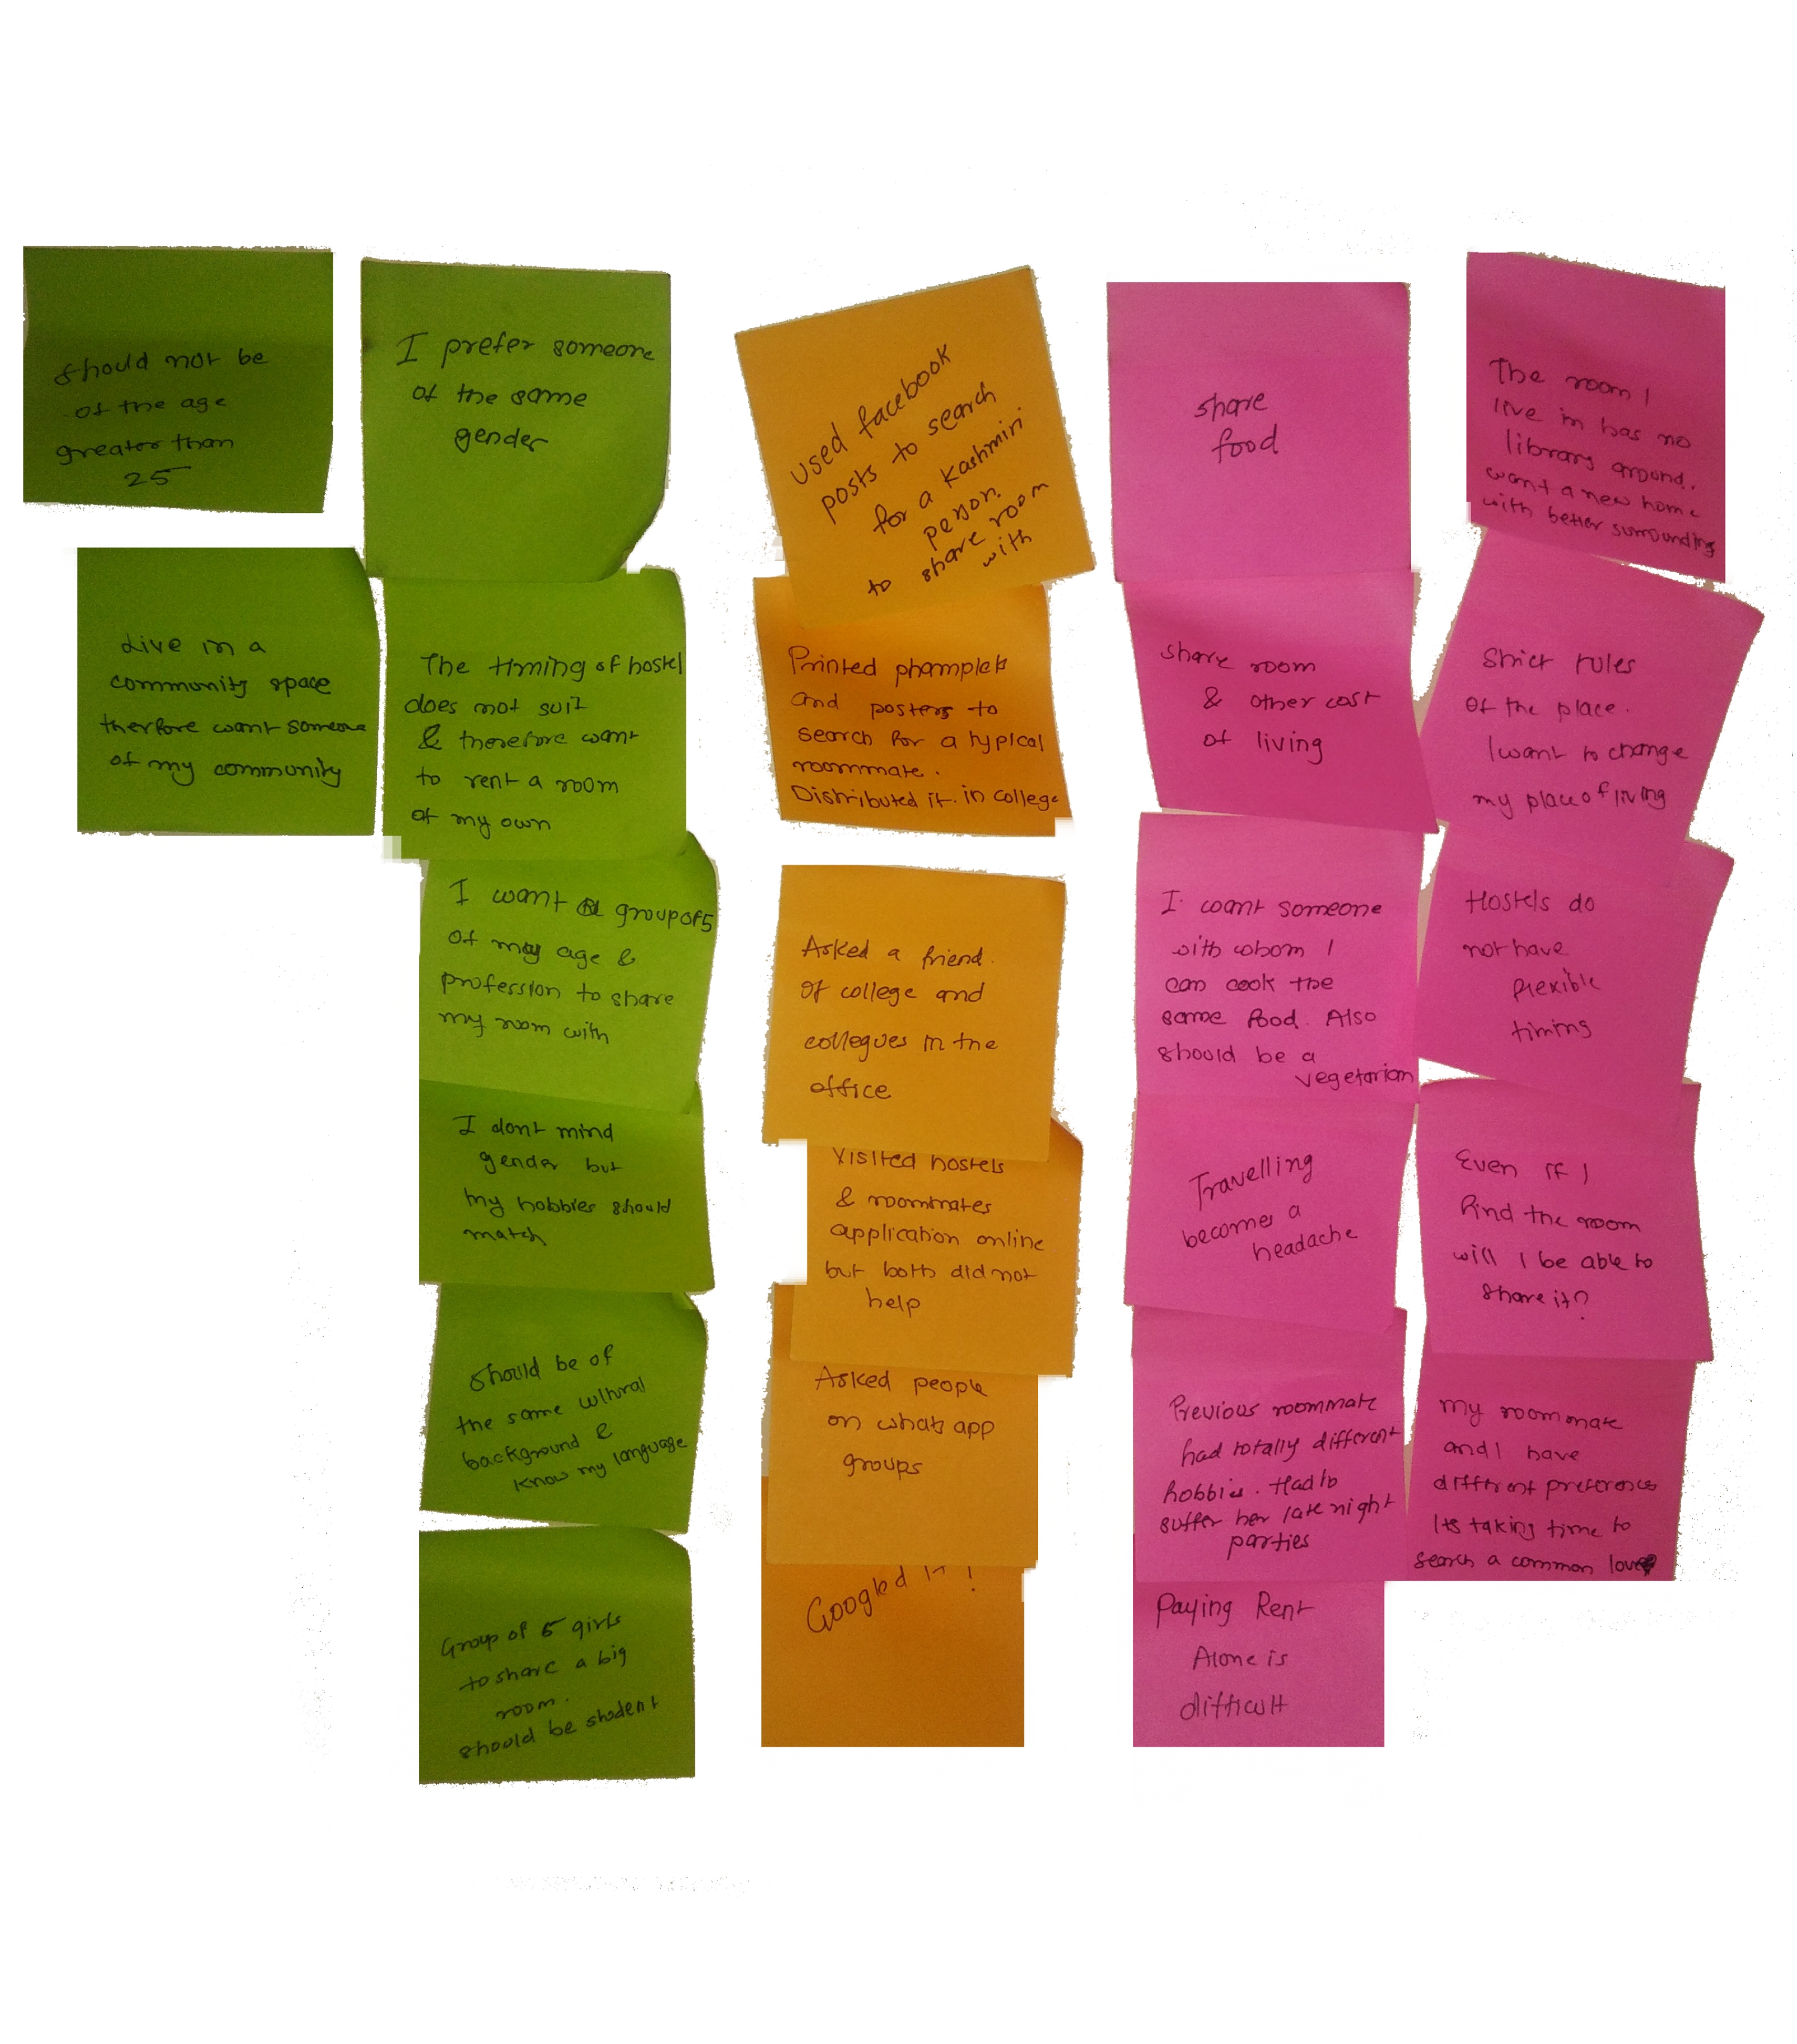 should not be
of the age
greater than
25
Live in a
community space
therfore want someone
of my community
I prefer someone
of the same
gender
The timing of hostel
does not suit
& therefore want
to rent a room
of my own
I want a group of 5
of my age &
profession to share
my room with
I dont mind
gender but
my hobbies should
match
should be of
the same cultural
background &
know my language
Group of 5 girls
to share a big
room.
should be student
used facebook
posts to search
for a Kashmiri
person.
to share room
with
Printed phamplets
and posters to
search for a typical
roommate.
Distributed it in college
Asked a friend
of college and
collegues in the
office
Visited hostels
& roommates
application online
but both did not
help
Asked people
on whatsapp
groups
Googled it !
share
food
share room
& other cost
of living
I want someone
with whom I
can cook the
same food. Also
should be a
vegetarian
Travelling
becomes a
headache
Previous roommate
had totally different
hobbies. Had to
suffer her late night
parties
Paying Rent
Alone is
difficult
The room I
live in has no
library around.
want a new home
with better surrounding
Strict rules
of the place.
I want to change
my place of living
Hostels do
not have
flexible
timing
Even if I
find the room
will I be able to
share it?
my roommate
and I have
different preferences
Its taking time to
search a common